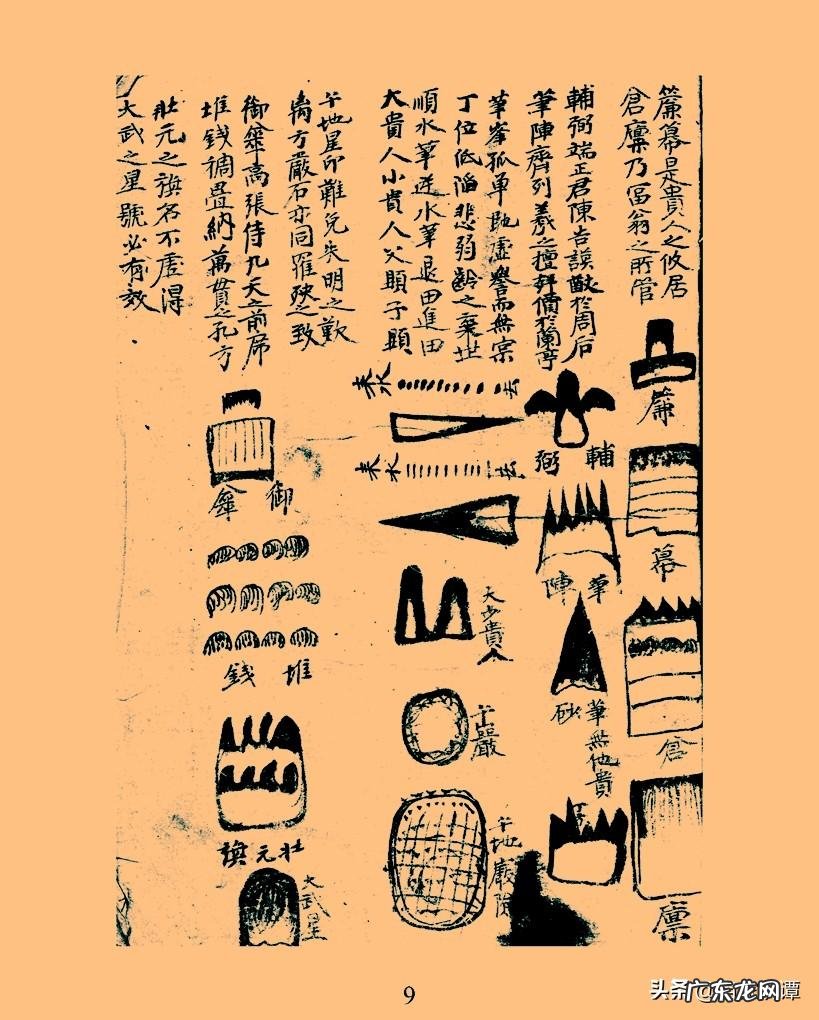 簾幕是貴人之攸居
倉廪乃冨翁之所管
輔弼端正君陳告謨猷於周后
筆陣齊列羲之擅
於蘭亭
筆峯孤單馳虛譽而無宲
丁位低陷悲弱齡之棄世
順水筆逆水筆退田進田
大貴人小貴人父顕子顕
午地星印難免失明之歎
离方嚴石亦同罹殃之致
御傘高張侍九天之前席
堆錢稠疊納萬貫之孔方
壯元之旗名不虛得
大武之星號必有效
簾
幕
倉
廪
輔弼
筆陣
筆砂
筆無他貴
來水
去
來水
去
大少貴人
午巖
午地巖
御傘
堆錢
壮元旗
大武星
9
头条
广东龙网
谭